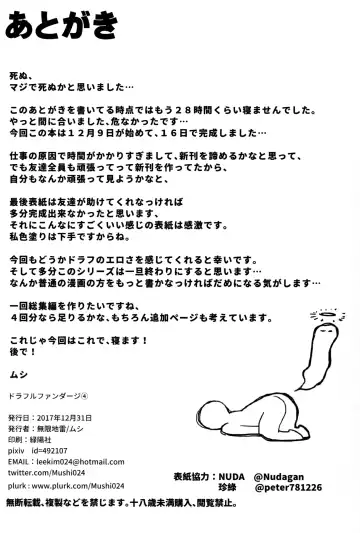 あとがき
死ぬ、
マジで死ぬかと思いました…
このあとがきを書いてる時点ではもう２８時間くらい寝ませんでした。
やっと間に合いました、危なかったです…
今回この本は１２月９日が始めて、１６日で完成しました…
仕事の原因で時間がかかりすぎまして、新刊を諦めるかなと思って、
でも友達全員も頑張ってって新刊を作ってたから、
自分もなんか頑張って見ようかなと、
最後表紙は友達が助けてくれなければ
多分完成出来なかったと思います、
それにこんなにすごくいい感じの表紙は感激です。
私色塗りは下手ですからね。
今回もどうかドラフのエロさを感じてくれると幸いです。
そして多分このシリーズは一旦終わりにすると思います…
なんか普通の漫画の方をもっと書かなければだめになる気がします…
一回総集編を作りたいですね、
４回分なら足りるかな、もちろん追加ページも考えています。
これじゃ今回はこれで、寝ます！
後で！
ムシ
ドラフルファンダージ④
発行日：2017年12月31日
発行者：無限地雷/ムシ
印刷：緑陽社
pixiv　id=492107
EMAIL：leekim024@hotmail.com
twitter.com/Mushi024
plurk：www.plurk.com/Mushi024
表紙協力：NUDA　@Nudagan
珍綠　@peter781226
無断転載、複製などを禁じます。十八歳未満購入、閲覧禁止。